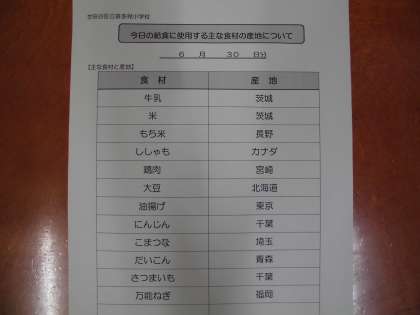 今日の給食に使用する主な食材の産地について
6 月 30 日分
【主な食材と産地】
食 材 産 地
牛乳 茨城
米 茨城
もち米 長野
ししゃも カナダ
鶏肉 宮崎
大豆 北海道
油揚げ 東京
にんじん 千葉
こまつな 埼玉
だいこん 青森
さつまいも 千葉
万能ねぎ 福岡